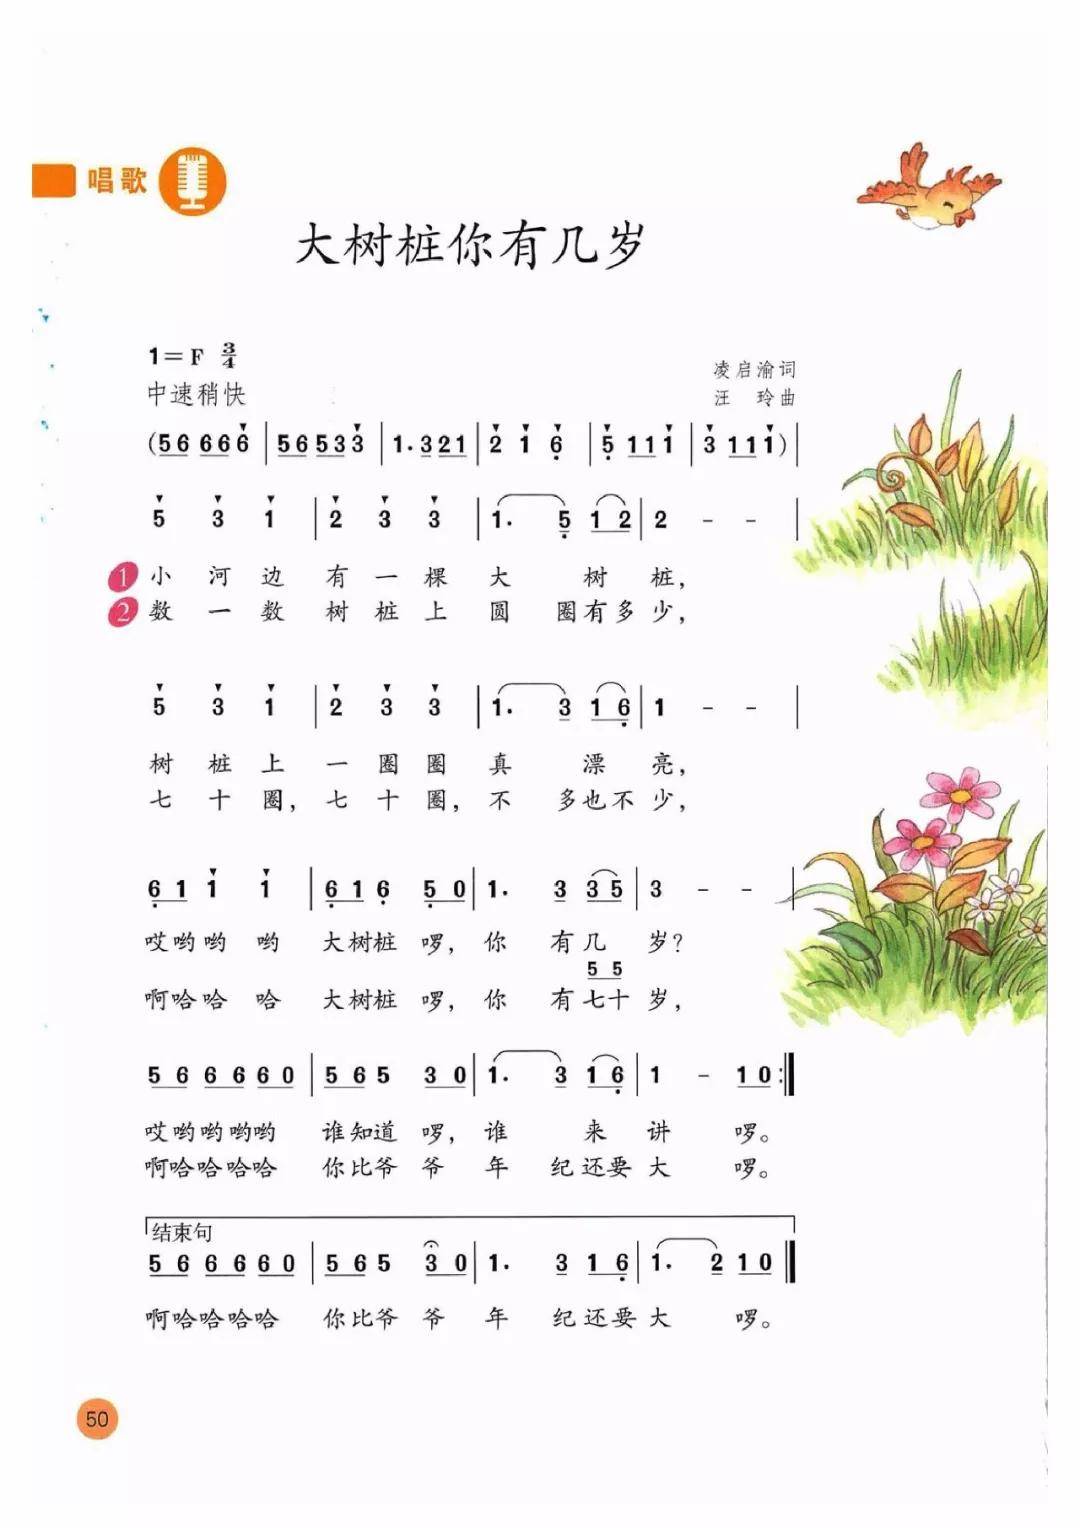 唱歌
大树桩你有几岁
1=F 3/4
凌启渝词
中速稍快
汪 玲曲
(56 666 | 56533 | 1.321 | 2 1 6 | 5 111 | 3 111) |
5 3 1 | 2 3 3 | 1. 5 12 | 2 - - |
1 小 河 边 有 一 棵 大 树 桩,
2 数 一 数 树 桩 上 圆 圈有多 少,
5 3 1 | 2 3 3 | 1. 3 16 | 1 - - |
树 桩 上 一 圈 圈 真 漂 亮,
七 十 圈, 七 十 圈, 不 多也不 少,
61 1 1 | 616 50 | 1. 3 35 | 3 - - |
哎哟哟 哟 大树桩 啰, 你 有几 岁?
5 5
啊哈哈 哈 大树桩 啰, 你 有七十 岁,
56 66 60 | 565 30 | 1. 3 16 | 1 - 10 :|
哎哟哟哟哟 谁知道 啰, 谁 来 讲 啰。
啊哈哈哈哈 你比爷 爷 年 纪还要 大 啰。
结束句
56 66 60 | 565 30 | 1. 3 16 | 1. 2 10 |
啊哈哈哈哈 你比爷 爷 年 纪还要 大 啰。
50